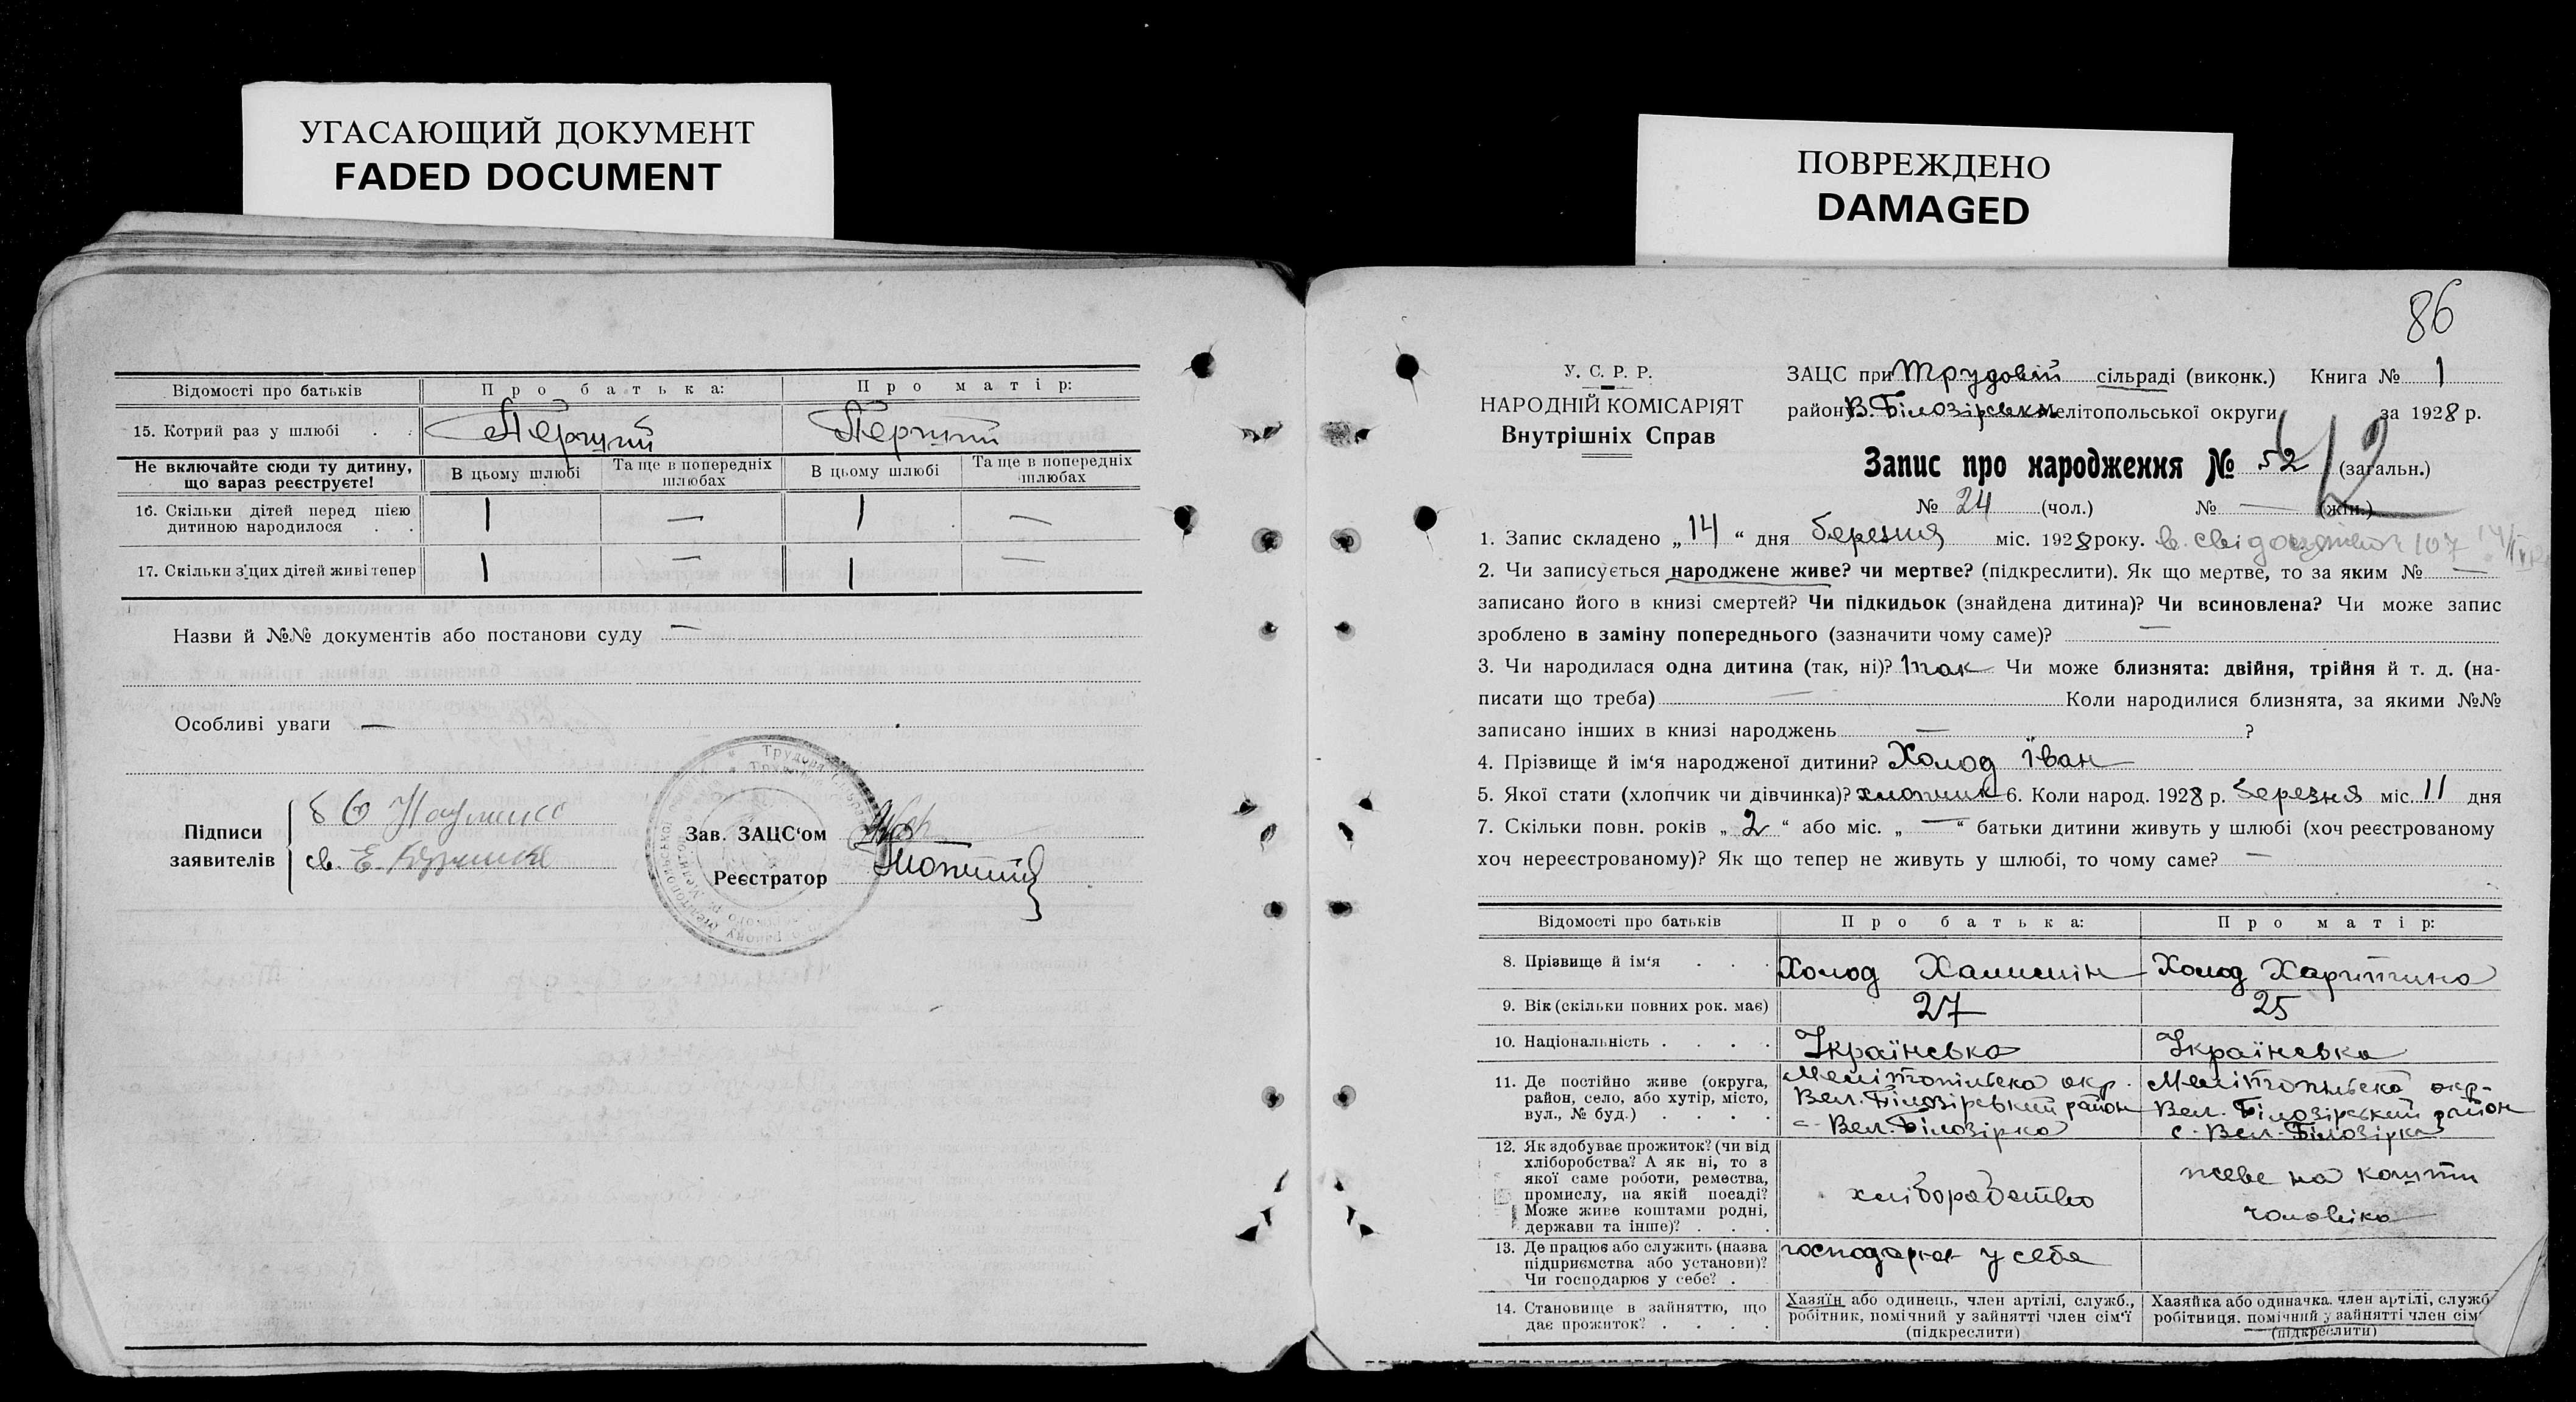 УГАСАЮЩИЙ ДОКУМЕНТ
FADED DOCUMENT
Відомості про батьків Про батька: Про матір:
15. Котрий раз у шлюбі . .
Не включайте сюди ту дитину, що вараз реєструєте!
В цьому шлюбі Та ще в попередніх шлюбах В цьому шлюбі Та ще в попередніх шлюбах
16. Скільки дітей перед цією дитиною народилося . . 1 — 1 —
17. Скільки з'цих дітей живі тепер 1 — 1 —
Назви й №№ документів або постанови суду —
Особливі уваги —
Підписи заявителів
Зав. ЗАЦС'ом
Реєстратор
ПОВРЕЖДЕНО
DAMAGED
86
У. С. Р. Р.
НАРОДНІЙ КОМІСАРІЯТ
Внутрішніх Справ
ЗАЦС при Трудовій сільраді (виконк.) Книга № 1
району В. Білозірськ Мелітопольської округи за 1928 р.
Запис про народження № 52 (загальн.)
12
№ 24 (чол.) № — (жін.)
1. Запис складено „14“ дня березня міс. 1928 року.
2. Чи записується народжене живе? чи мертве? (підкреслити). Як що мертве, то за яким № —
записано його в книзі смертей? Чи підкидьок (знайдена дитина)? Чи всиновлена? Чи може запис
зроблено в заміну попереднього (зазначити чому саме)? —
3. Чи народилася одна дитина (так, ні)? так Чи може близнята: двійня, трійня й т. д. (на-
писати що треба) — Коли народилися близнята, за якими №№
записано інших в книзі народжень — ?
4. Прізвище й ім'я народженої дитини? Холод Іван
5. Якої стати (хлопчик чи дівчинка)? хлопчик 6. Коли народ. 1928 р. березня міс. 11 дня
7. Скільки повн. років „2“ або міс. „—“ батьки дитини живуть у шлюбі (хоч реєстрованому
хоч нереєстрованому)? Як що тепер не живуть у шлюбі, то чому саме? —
Відомості про батьків Про батька: Про матір:
8. Прізвище й ім'я . . . Холод Холод Харитина
9. Вік (скільки повних рок. має) 27 25
10. Національність . . . . Українська Українська
11. Де постійно живе (округа, район, село, або хутір, місто, вул., № буд.) . . . .
Мелітопільська окр. Вел. Білозірський район с. Вел. Білозірка
Мелітопільська окр. Вел. Білозірський район с. Вел. Білозірка
12. Як здобуває прожиток? (чи від хліборобства? А як ні, то з якої саме роботи, ремества, промислу, на якій посаді? Може живе коштами родні, держави та інше)? . . .
хліборобство
живе на кошти чоловіка
13. Де працює або служить (назва підприємства або установи)? Чи господарює у себе? .
господарює у себе
14. Становище в зайняттю, що дає прожиток? . . . .
Хазяїн або одинець, член артілі, служб., робітник, помічний у зайнятті член сім'ї (підкреслити)
Хазяйка або одиначка. член артілі, служб робітниця. помічний у зайнятті член сім' (підкреслити)